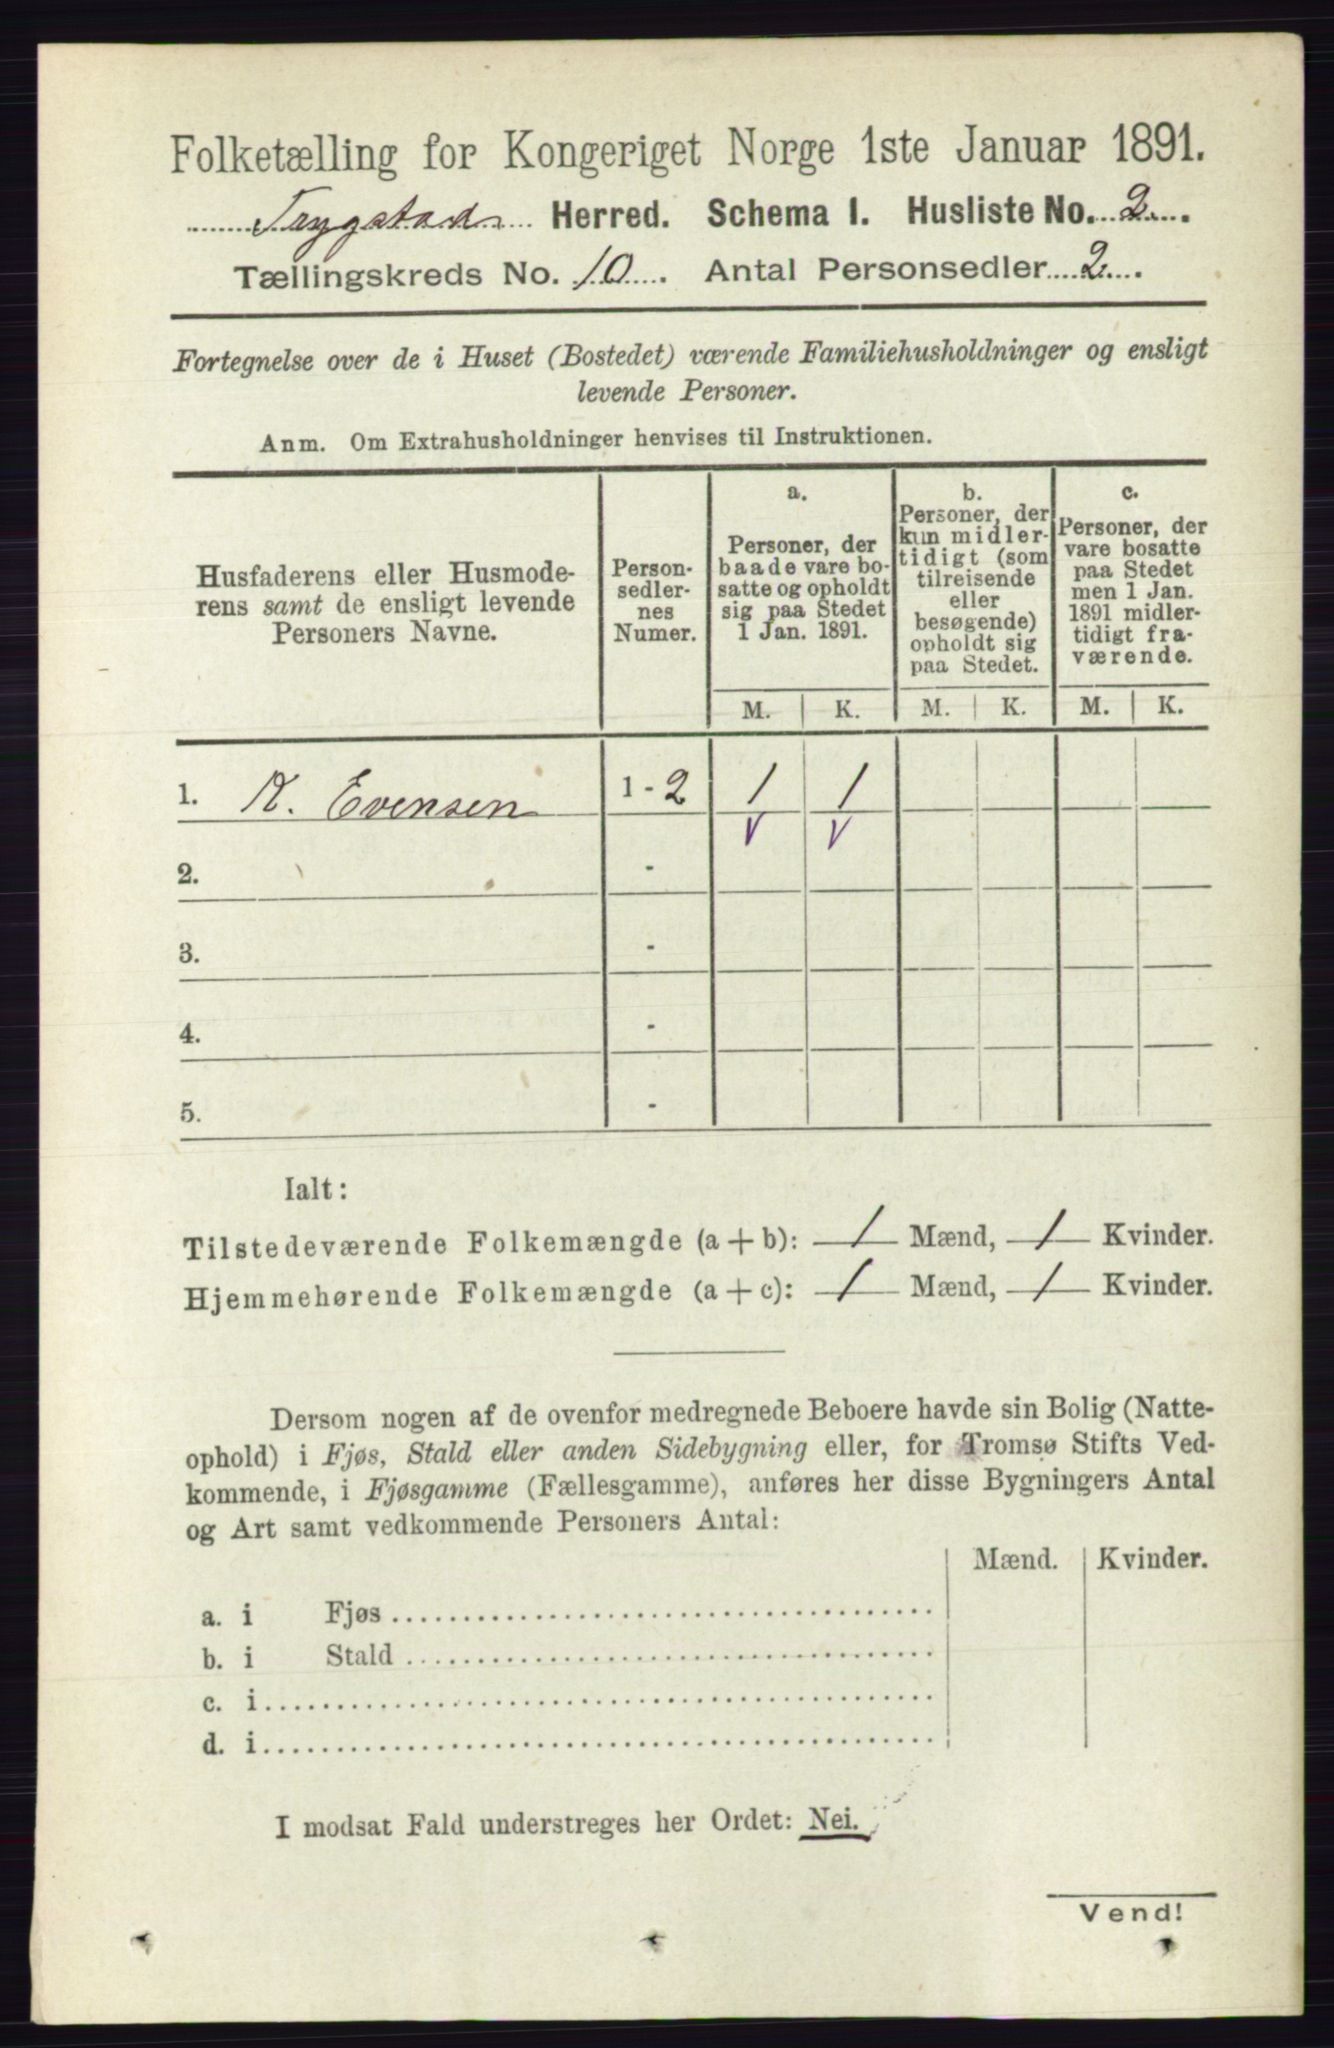 Folketælling for Kongeriget Norge 1ste Januar 1891.
Trygstad Herred. Schema 1. Husliste No. 2.
Tællingskreds No. 10. Antal Personsedler 2.
Fortegnelse over de i Huset (Bostedet) værende Familiehusholdninger og ensligt
levende Personer.
Anm. Om Extrahusholdninger henvises til Instruktionen.
Husfaderens eller Husmode-
rens samt de ensligt levende
Personers Navne.
Person-
sedler-
nes
Numer.
a.
Personer, der
baade vare bo-
satte og opholdt
sig paa Stedet
1 Jan. 1891.
b.
Personer, der
kun midler-
tidigt (som
tilreisende
eller
besøgende)
opholdt sig
paa Stedet.
c.
Personer, der
vare bosatte
paa Stedet
men 1 Jan.
1891 midler-
tidigt fra-
værende.
M. K. M. K. M. K.
1. K. Evensen 1 - 2 1 1
V V
2. -
3. -
4. -
5. -
Ialt:
Tilstedeværende Folkemængde (a + b): 1 Mænd, 1 Kvinder.
Hjemmehørende Folkemængde (a + c): 1 Mænd, 1 Kvinder.
Dersom nogen af de ovenfor medregnede Beboere havde sin Bolig (Natte-
ophold) i Fjøs, Stald eller anden Sidebygning eller, for Tromsø Stifts Ved-
kommende, i Fjøsgamme (Fællesgamme), anføres her disse Bygningers Antal
og Art samt vedkommende Personers Antal:
Mænd. Kvinder.
a. i Fjøs
b. i Stald
c. i
d. i
I modsat Fald understreges her Ordet: Nei.
Vend!